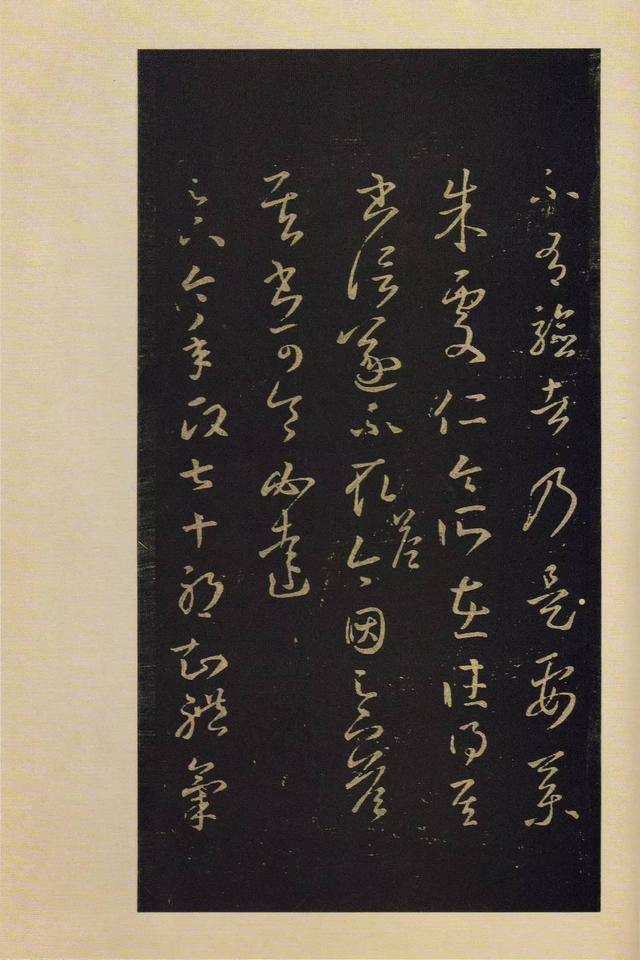 不有驗者乃是要藥
朱處仁今所在往得其
書信遂不取答今因足下答
其書可令必達
足下今年政七十耶知體氣